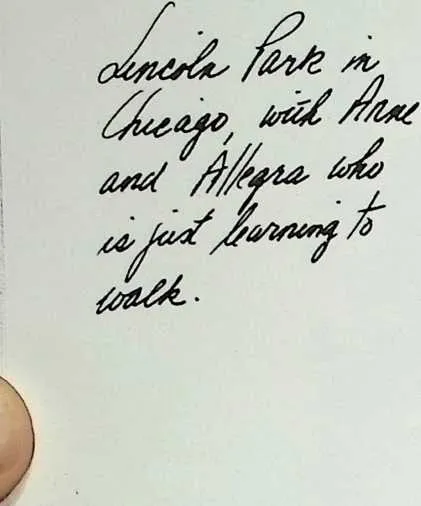 Lincoln Park in
Chicago, with Anne
and Allegra who
is just learning to
walk.